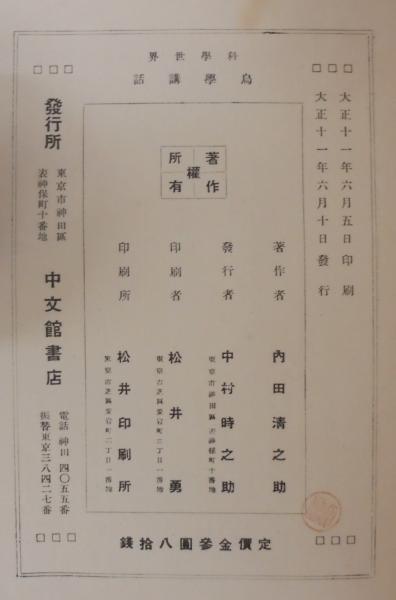 科學世界
鳥學講話
大正十一年六月五日印刷
大正十一年六月十日發行
著作權所有
著作者 內田淸之助
發行者 中村時之助
東京市神田區表神保町十番地
印刷者 松井勇
東京市芝區愛宕町三丁目一番地
印刷所 松井印刷所
東京市芝區愛宕町三丁目一番地
定價金參圓八拾錢
發行所
東京市神田區
表神保町十番地
中文館書店
電話神田四〇五五番
振替東京三八四二七番